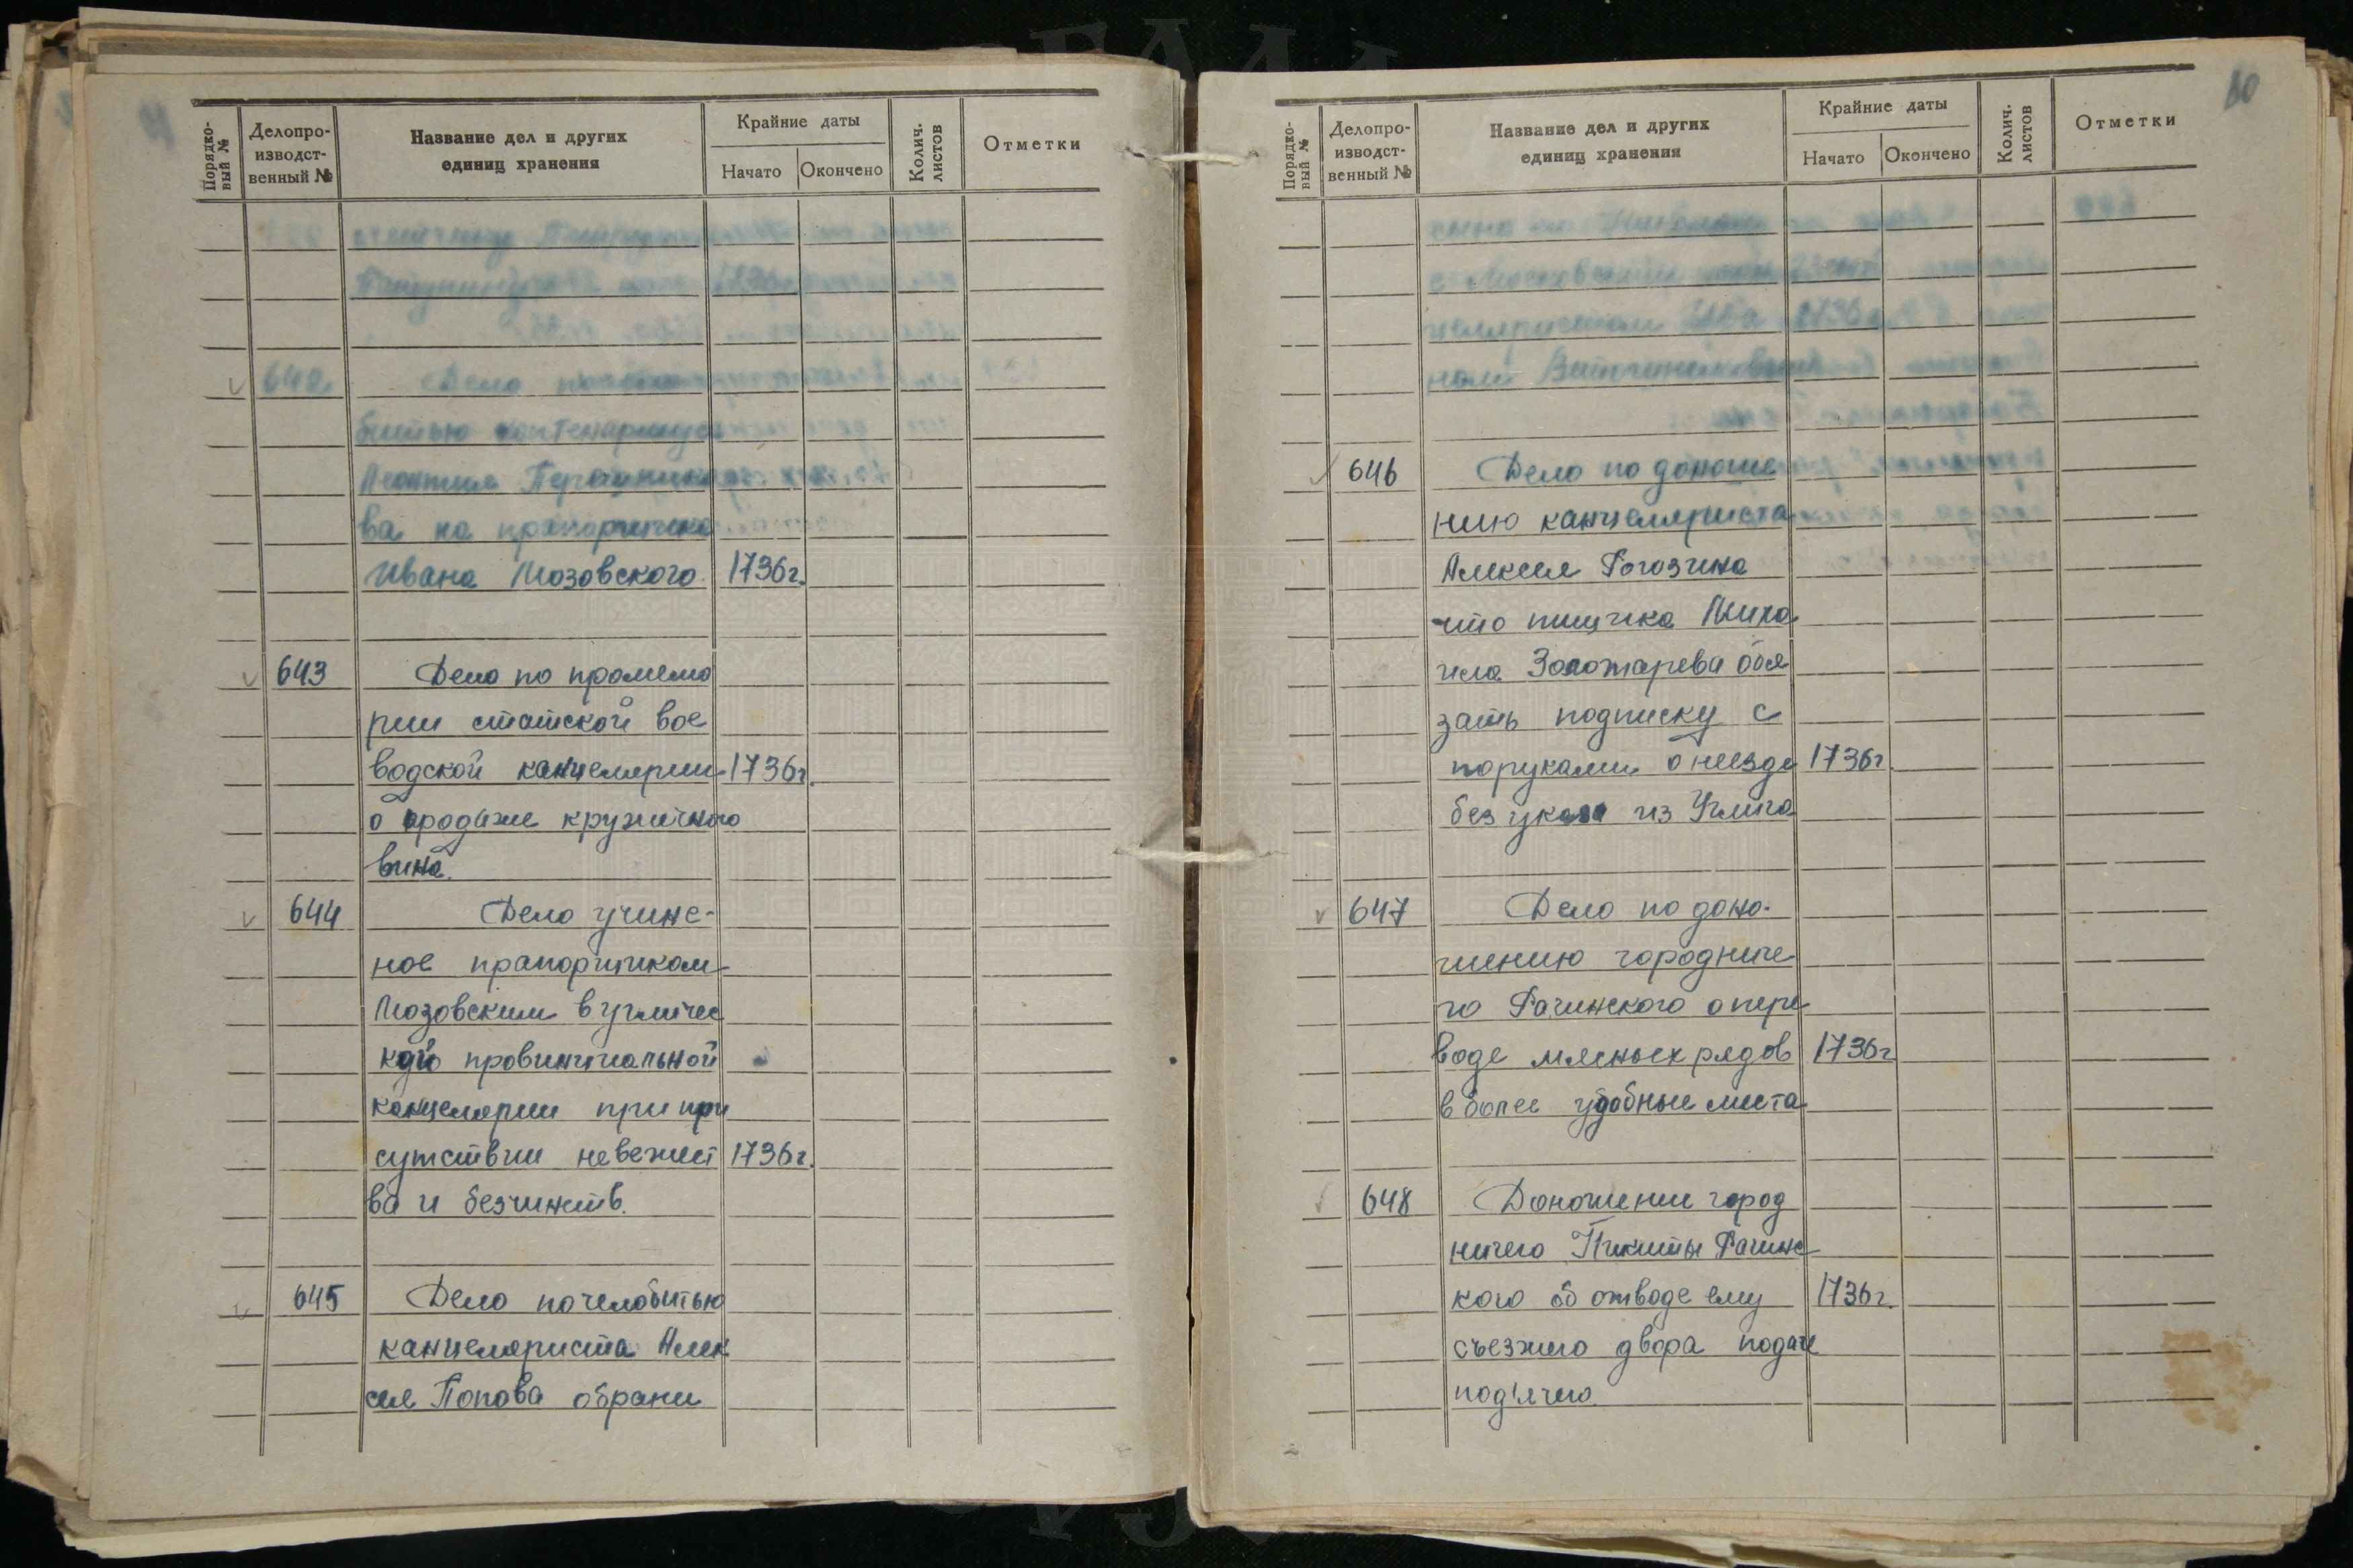 Порядко-
вый №
Делопро-
изводст-
венный №
Название дел и других
единиц хранения
Крайние даты
Начато
Окончено
Колич.
листов
Отметки
642. Дело
битью
Леонтия
ва на прапорщика
Ивана Мозовского 1736г.
643 Дело по промемо
рии статской вое
водской канцелярии 1736г.
о продаже кружечного
вина.
644 Дело учине-
ное прапорщиком
Мозовским в угличес
кой провинциальной
канцелярии при при
сутствии невежест 1736г.
ва и безчинств.
645 Дело по челобитью
канцеляриста Алек
сея Попова о брани
Порядко-
вый №
Делопро-
изводст-
венный №
Название дел и других
единиц хранения
Крайние даты
Начато
Окончено
Колич.
листов
Отметки
10
с Московским
1736
ном
646 Дело по доноше
нию канцеляриста
Алексея Рогозина
что пищика Миха
ила Золотарева обя
зать подписку с
поруками о неезде 1736г.
без указа из Углича
647 Дело по доно-
шению городниче
го Рачинского о пере
воде мясных рядов 1736г
в более удобные места
648 Доношении город
ничего Никиты Рачинс
кого об отводе ему 1736г.
съезжего двора подаче
под'ячего.